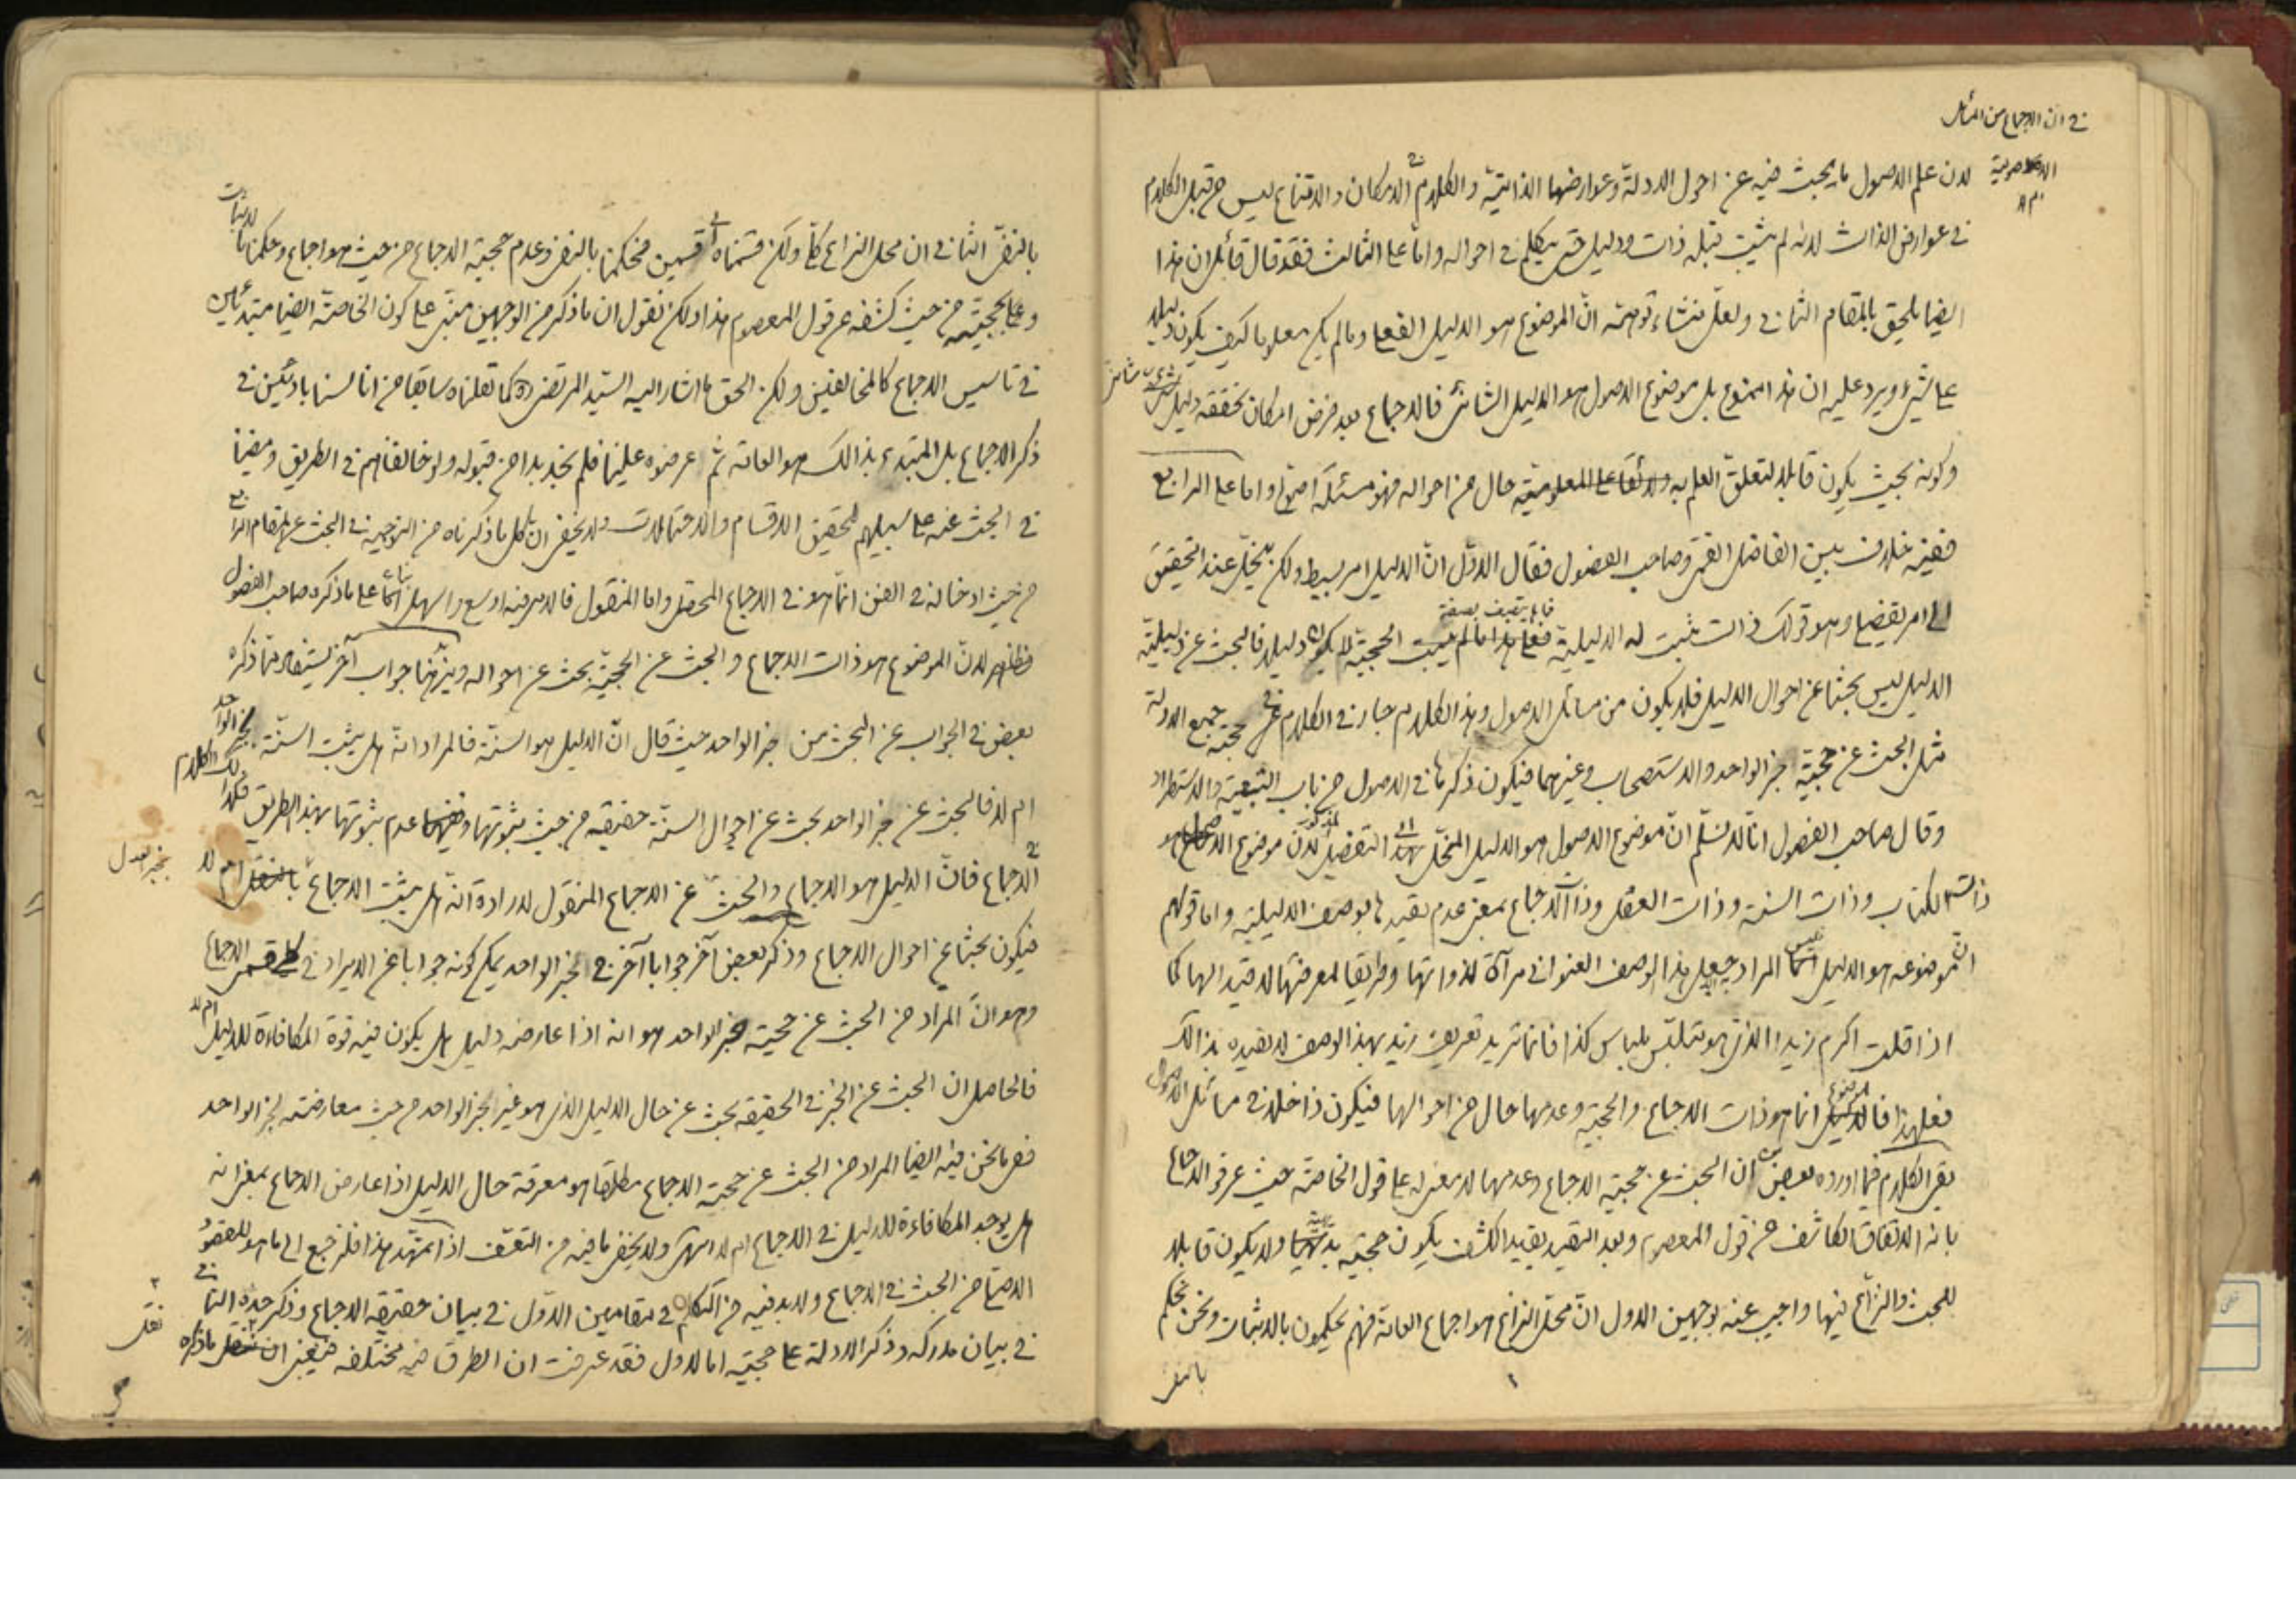 في ان الاجماع من المسائل
الاصولية
لان علم الاصول ما يبحث فيه عن احوال الادلة وعوارضها الذاتية والكلام في الامكان والامتناع ليس من قبيل الكلام
في عوارض الذات لانه لم يثبت قبله ذات ودليل حتى يتكلم في احواله واما على الثالث فقد قال قائل ان هذا
ايضا يلحق بالمقام الثاني ولعل منشاء توهمه ان الموضوع هو الدليل الفعلي وما لم يكن معلوما كيف يكون دليلا
على شيء ويرد عليه ان هذا ممنوع بل موضوع الاصول هو الدليل الشأني فالاجماع بعد فرض امكان تحققه دليل شأني
وكونه بحيث يكون قابلا لتعلق العلم به حال من احواله فهو مسئلة اصولية واما على الرابع
ففيه خلاف بين الفاضل القمي وصاحب الفصول فقال الاول ان الدليل امر بسيط ولكن ينحل عند التحقيق
الى امر تفضيلي وهو قولك ذات ثبت له الدليلية فما لم يتصف بصفة الحجية لا يكون دليلا فالبحث عن دليلية
الدليل ليس بحثا عن احوال الدليل فلا يكون من مسائل الاصول وهذا الكلام جار في الكلام في حجية جميع الادلة
مثل البحث عن حجية خبر الواحد والاستصحاب وغيرهما فيكون ذكرها في الاصول من باب التبعية والاستطراد
وقال صاحب الفصول انا لا نسلم ان موضوع الاصول هو الدليل المنحل الى التفصيل المذكور لان موضوع الاصول هو
ذات الكتاب وذات السنة وذات العقل وذات الاجماع بمعنى عدم تقيدها بوصف الدليلية واما قولهم
ان موضوعه هو الدليل فليس المراد جعل هذا الوصف العنواني مرآة لذواتها وطريقا لمعرفتها لا قيدا لها كما
اذا قلت اكرم زيدا الذي هو متلبس بلباس كذا فانما تريد تعريف زيد بهذا الوصف لا تقييده بذلك
فعلى هذا فالموضوع انما هو ذات الاجماع والحجية وعدمها حال من احوالها فيكون داخلا في مسائل الاصول
بقي الكلام فيما اورده بعض من ان البحث عن حجية الاجماع وعدمها لا معنى له على قول الخاصة حيث عرفوا الاجماع
بانه الاتفاق الكاشف عن قول المعصوم وبعد التقييد بقيد الكشف يكون حجيته بديهية ولا يكون قابلا
للبحث والنزاع فيها واجيب عنه بوجهين الاول ان محل النزاع هو اجماع العامة فهم يحكمون بالاثبات ونحن نحكم
بالنفي
بالنفي الثاني ان محل النزاع كلي ولكن قسمناه الى قسمين فحكمنا بالنفي وعدم حجية الاجماع من حيث هو اجماع وحكمنا بالاثبات
وعلى حجيته من حيث كشفه عن قول المعصوم هذا ولكن نقول ان ما ذكر من الوجهين مبني على كون الخاصة ايضا مبتدئين
في تاسيس الاجماع كالمخالفين ولكن الحق ما اشار اليه السيد المرتضى ره كما نقلناه سابقا من انا لسنا بادئين في
ذكر الاجماع بل المبتدء بذلك هو العامة ثم عرضوه علينا فلم نجد بدا من قبوله ولو خالفناهم في الطريق ومضينا
في البحث عنه على سبيلهم لتحقيق الاقسام والاحتمالات ولا يخفى ان كل ما ذكرناه من التوجيه في البحث عن المقام الرابع
من حيث ادخاله في الفن انما هو في الاجماع المحصل واما المنقول فالامر فيه اوسع واسهل اما على ما ذكره صاحب الفصول
فظاهر لان الموضوع هو ذات الاجماع والبحث عن الحجية بحث عن احواله ويزيد هنا جواب آخر يستفاد مما ذكره
بعض في الجواب عن البحث من خبر الواحد حيث قال ان الدليل هو السنة فالمراد انه هل يثبت السنة بخبر الواحد
ام لا فالبحث عن خبر الواحد بحث عن احوال السنة حقيقة من حيث ثبوتها وعدم ثبوتها بهذا الطريق فكذا الكلام
في الاجماع فان الدليل هو الاجماع والبحث عن الاجماع المنقول لارادة انه هل يثبت الاجماع بخبر العدل ام لا
فيكون بحثا عن احوال الاجماع وذكر بعض آخر جوابا آخر في خبر الواحد يمكن كونه جوابا عن الايراد في الاجماع
وهو ان المراد من البحث عن حجية خبر الواحد هو انه اذا عارضه دليل هل يكون فيه قوة المكافاءة للدليل ام لا
فالحاصل ان البحث عن الخبر في الحقيقة بحث عن حال الدليل الذي هو غير الخبر الواحد من حيث معارضته لخبر الواحد
ففي ما نحن فيه ايضا المراد من البحث عن حجية الاجماع مطلقا هو معرفة حال الدليل اذا عارض الاجماع بمعنى انه
هل يوجد المكافاءة للدليل في الاجماع ام لا ولا يخفى ما فيه من التعسف اذا تمهد هذا فلنرجع الى ما هو المقصود
من البحث في الاجماع ولا بد فيه من التكلم في مقامين الاول في بيان حقيقة الاجماع وذكر حده الثاني
في بيان مدركه وذكر الادلة على حجيته اما الاول فقد عرفت ان الطرق فيه مختلفة فينبغي ان ننقل ما ذكره